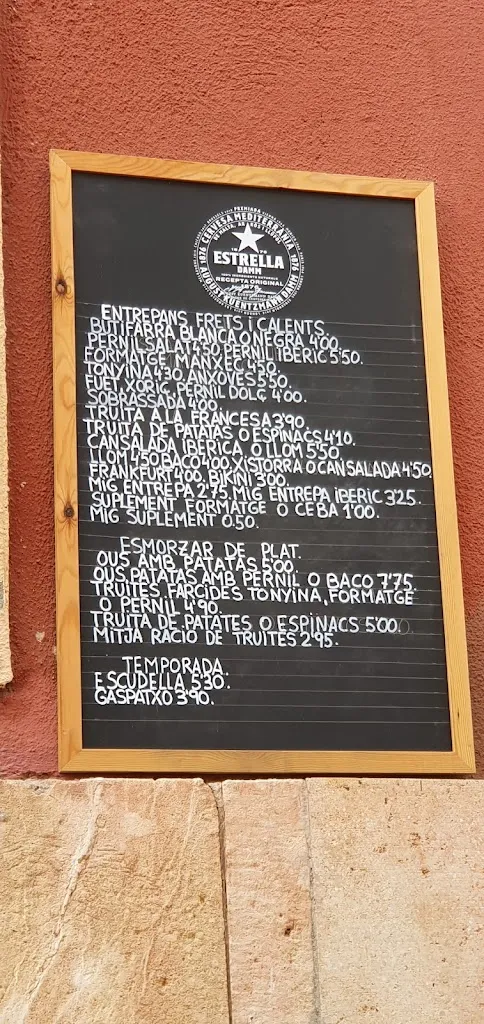 CERVESA MEDITERRÀNIA
DE MALTA, AR
1876
1876
ESTRELLA
DAMM
RECEPTA ORIGINAL
1876
AUGUST KUENTZMANN DAMM
ENTREPANS FRETS i CALENTS.
BUTIFARRA BLANCA O NEGRA 4'00.
PERNIL SALAT 4'50. PERNIL IBÈRIC 5'50.
FORMATGE MANXEC 4'50.
TONYINA 4'30. ANXOVES 5'50.
FUET, XORIÇ, PERNIL DOLÇ 4'00.
SOBRASSADA 4'00.
TRUITA A LA FRANCESA 3'90.
TRUITA DE PATATAS O ESPINACS 4'10.
CANSALADA IBÈRICA O LLOM 5'50.
LLOM 4'50 BACO 4'00. XISTORRA O CANSALADA 4'50.
FRANKFURT 4'00. BIKINI 3'00.
MIG ENTREPÀ 2'75. MIG ENTREPA IBERIC 3'25.
SUPLEMENT FORMATGE O CEBA 1'00.
MIG SUPLEMENT 0.50.
ESMORZAR DE PLAT.
OUS AMB PATATAS 5'00.
OUS, PATATAS AMB PERNIL O BACO 7'75.
TRUITES, FARCIDES TONYINA, FORMATGE
O PERNIL 4'90.
TRUITA DE PATATES O ESPINACS 5'00.
MITJA RACIO DE TRUITES 2'95.
TEMPORADA
ESCUDELLA 5'30.
GASPATXO 3'90.